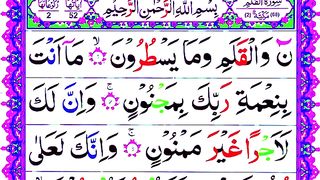 سُوْرَةُ الْقَلَمِ
بِسْمِ اللّٰهِ الرَّحْمٰنِ الرَّحِيْمِ
اٰيَاتُهَا 52
رُكُوْعَاتُهَا 2
نٓ وَالْقَلَمِ وَمَا يَسْطُرُوْنَ ۙ﴿۱﴾ مَاۤ اَنْتَ
بِنِعْمَةِ رَبِّكَ بِمَجْنُوْنٍ ۚ﴿۲﴾ وَاِنَّ لَكَ
لَاَجْرًا غَيْرَ مَمْنُوْنٍ ۚ﴿۳﴾ وَاِنَّكَ لَعَلٰى